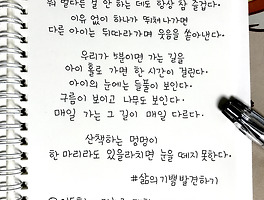 뭐 별다른 걸 안 하는 데도 항상 참 즐겁다.
이유 없이 하나가 뛰쳐나가면
다른 아이는 뒤따라가며 웃음을 쏟아낸다.
우리가 5분이면 가는 길을
아이 홀로 가면 한 시간이 걸린다.
아이의 눈에는 들풀이 보인다.
구름이 보이고 나무도 보인다.
매일 가는 그 길이 매일 다르다.
산책하는 멍멍이
한 마리라도 있을라치면 눈을 떼지 못한다.
#삶의기쁨발견하기